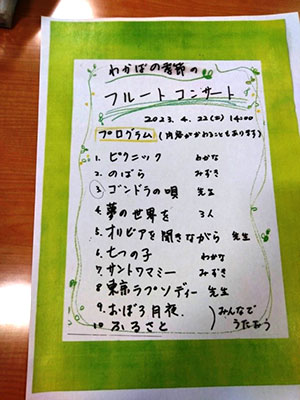 わかばの季節の
フルートコンサート
2023. 4. 22(日) 14:00
プログラム (内容がかわることもあります)
1. ピクニック わかな
2. のばら みずき
③ ゴンドラの唄 先生
4 夢の世界を 3人
5. オリビアを聞きながら 先生
6. 七つの子 わかな
7. サントワマミー みずき
8 東京ラプソディー 先生
9. おぼろ月夜. )みんなで
10 ふるさと うたおう